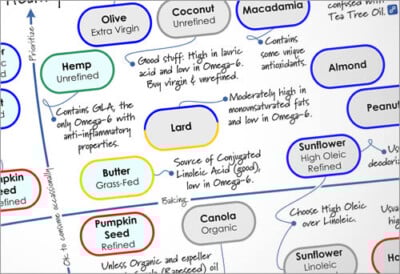 Olive
Extra Virgin
Coconut
Unrefined
Macadamia
confused with
Tea Tree Oil.
Prioritize
Hemp
Unrefined
Good stuff. High in lauric
acid and low in Omega-6.
Buy virgin & unrefined.
Contains
some unique
antioxidants.
Almond
Contains GLA, the
only Omega-6 with
anti-inflammatory
properties.
Lard
Moderately high in
monounsaturated fats
and low in Omega-6.
Peanut
Butter
Grass-Fed
Source of Conjugated
Linoleic Acid (good),
low in Omega-6.
Sunflower
High Oleic
Refined
Baking
OK to consume occasionally
Seed
Refined
Pumpkin
Seed
Refined
Canola
Organic
Choose High Oleic
over Linoleic.
Unless Organic and expeller
(Rapeseed) oil
Sunflower
Linoleic